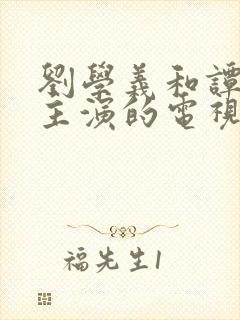 劉學義和譚
主演的電視
福先生1